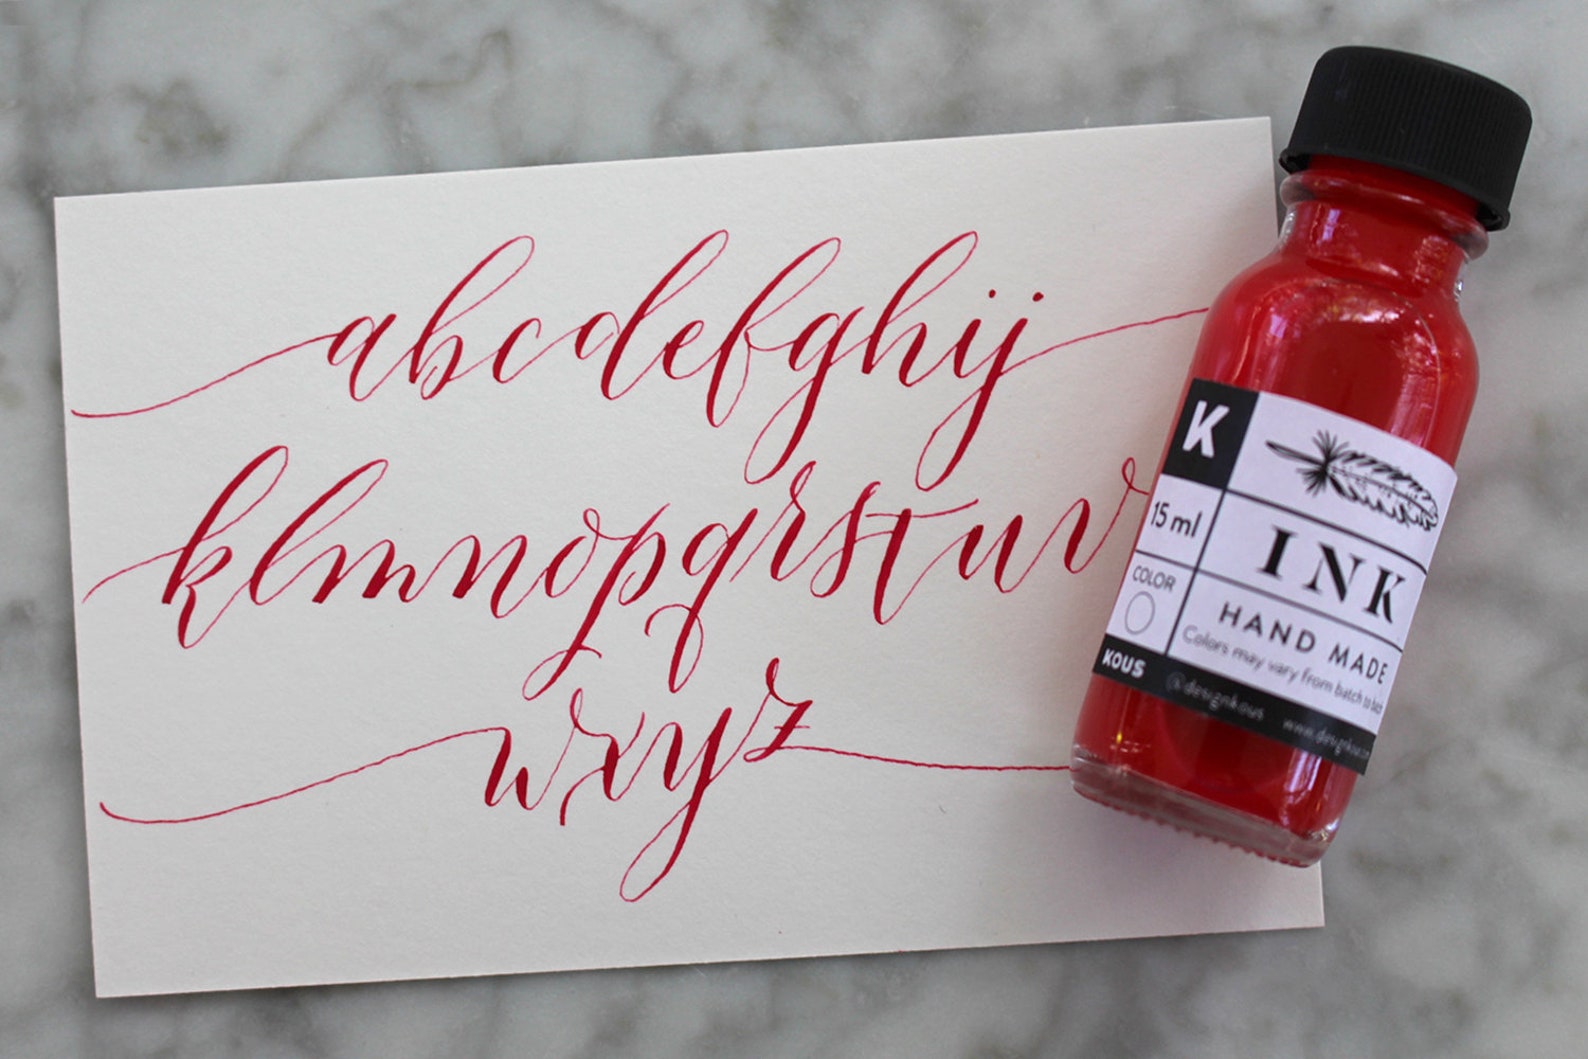 abcdefghij
klmnopqrstuv
wxyz
K
15 ml
INK
COLOR
HAND MADE
Colors may vary from batch to batch
KOUS
@designkous www.designkous.com